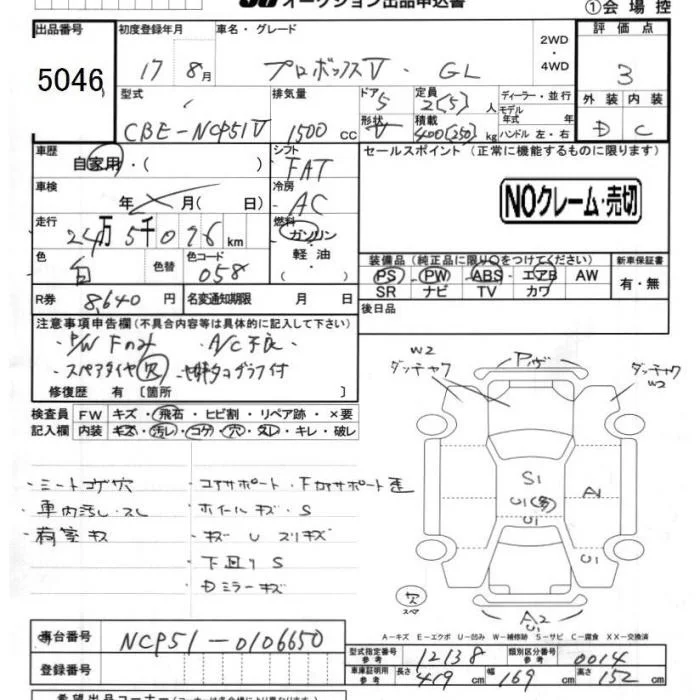 オークション出品申込書
①会場控
出品番号 初度登録年月 車名・グレード 2WD・4WD 評価点
5046 17 8月 プロボックスV・GL 3
型式 排気量 ドア 5 定員 2(5)人 ディーラー・並行 外装 内装
CBE-NCP51V 1500cc 形状 V 積載 400(250)kg モデル年式 年式 ハンドル 左・右 D C
車歴 自家用・( ) シフト FAT セールスポイント(正常に機能するものに限ります)
車検 年 月(日) 冷房 AC NOクレーム・売切
走行 24万5千096km 燃料 ガソリン・軽油・( )
色 白 色替 色コード 058 装備品(純正品に限り○をつけてください) 新車保証書
PS・PW・ABS・エアB AW 有・無
SR ナビ TV カワ
R券 8,640円 名変通知期限 月 日 後日品
注意事項申告欄(不具合内容等は具体的に記入して下さい)
・P/W Fのみ ・A/C不良
・スペアタイヤ欠
修復歴 有〔箇所 〕
検査員記入欄 FW キズ・飛石・ヒビ割・リペア跡・×要
内装 キズ・汚レ・コゲ・穴・スレ・キレ・破レ
・シートコゲ穴 ・コアサポート・Fコアサポート歪
・車内汚レ・スレ ・ホイールキズ・S
・荷室キズ ・キズ U スリキズ
下回リS
・Dミラーキズ
W2 ダッチャク
ダッチャク W2
S1
U1(多)
U1
A1
U1
欠 スペア
A2
U1
A-キズ E-エクボ U-凹み W-補修跡 S-サビ C-腐食 XX-交換済
車台番号 NCP51-0106650
型式指定番号 参考 12138 類別区分番号 参考 0014
登録番号 車庫証明用 参考 長さ 419cm 幅 169cm 高さ 152cm
希望出品コーナー